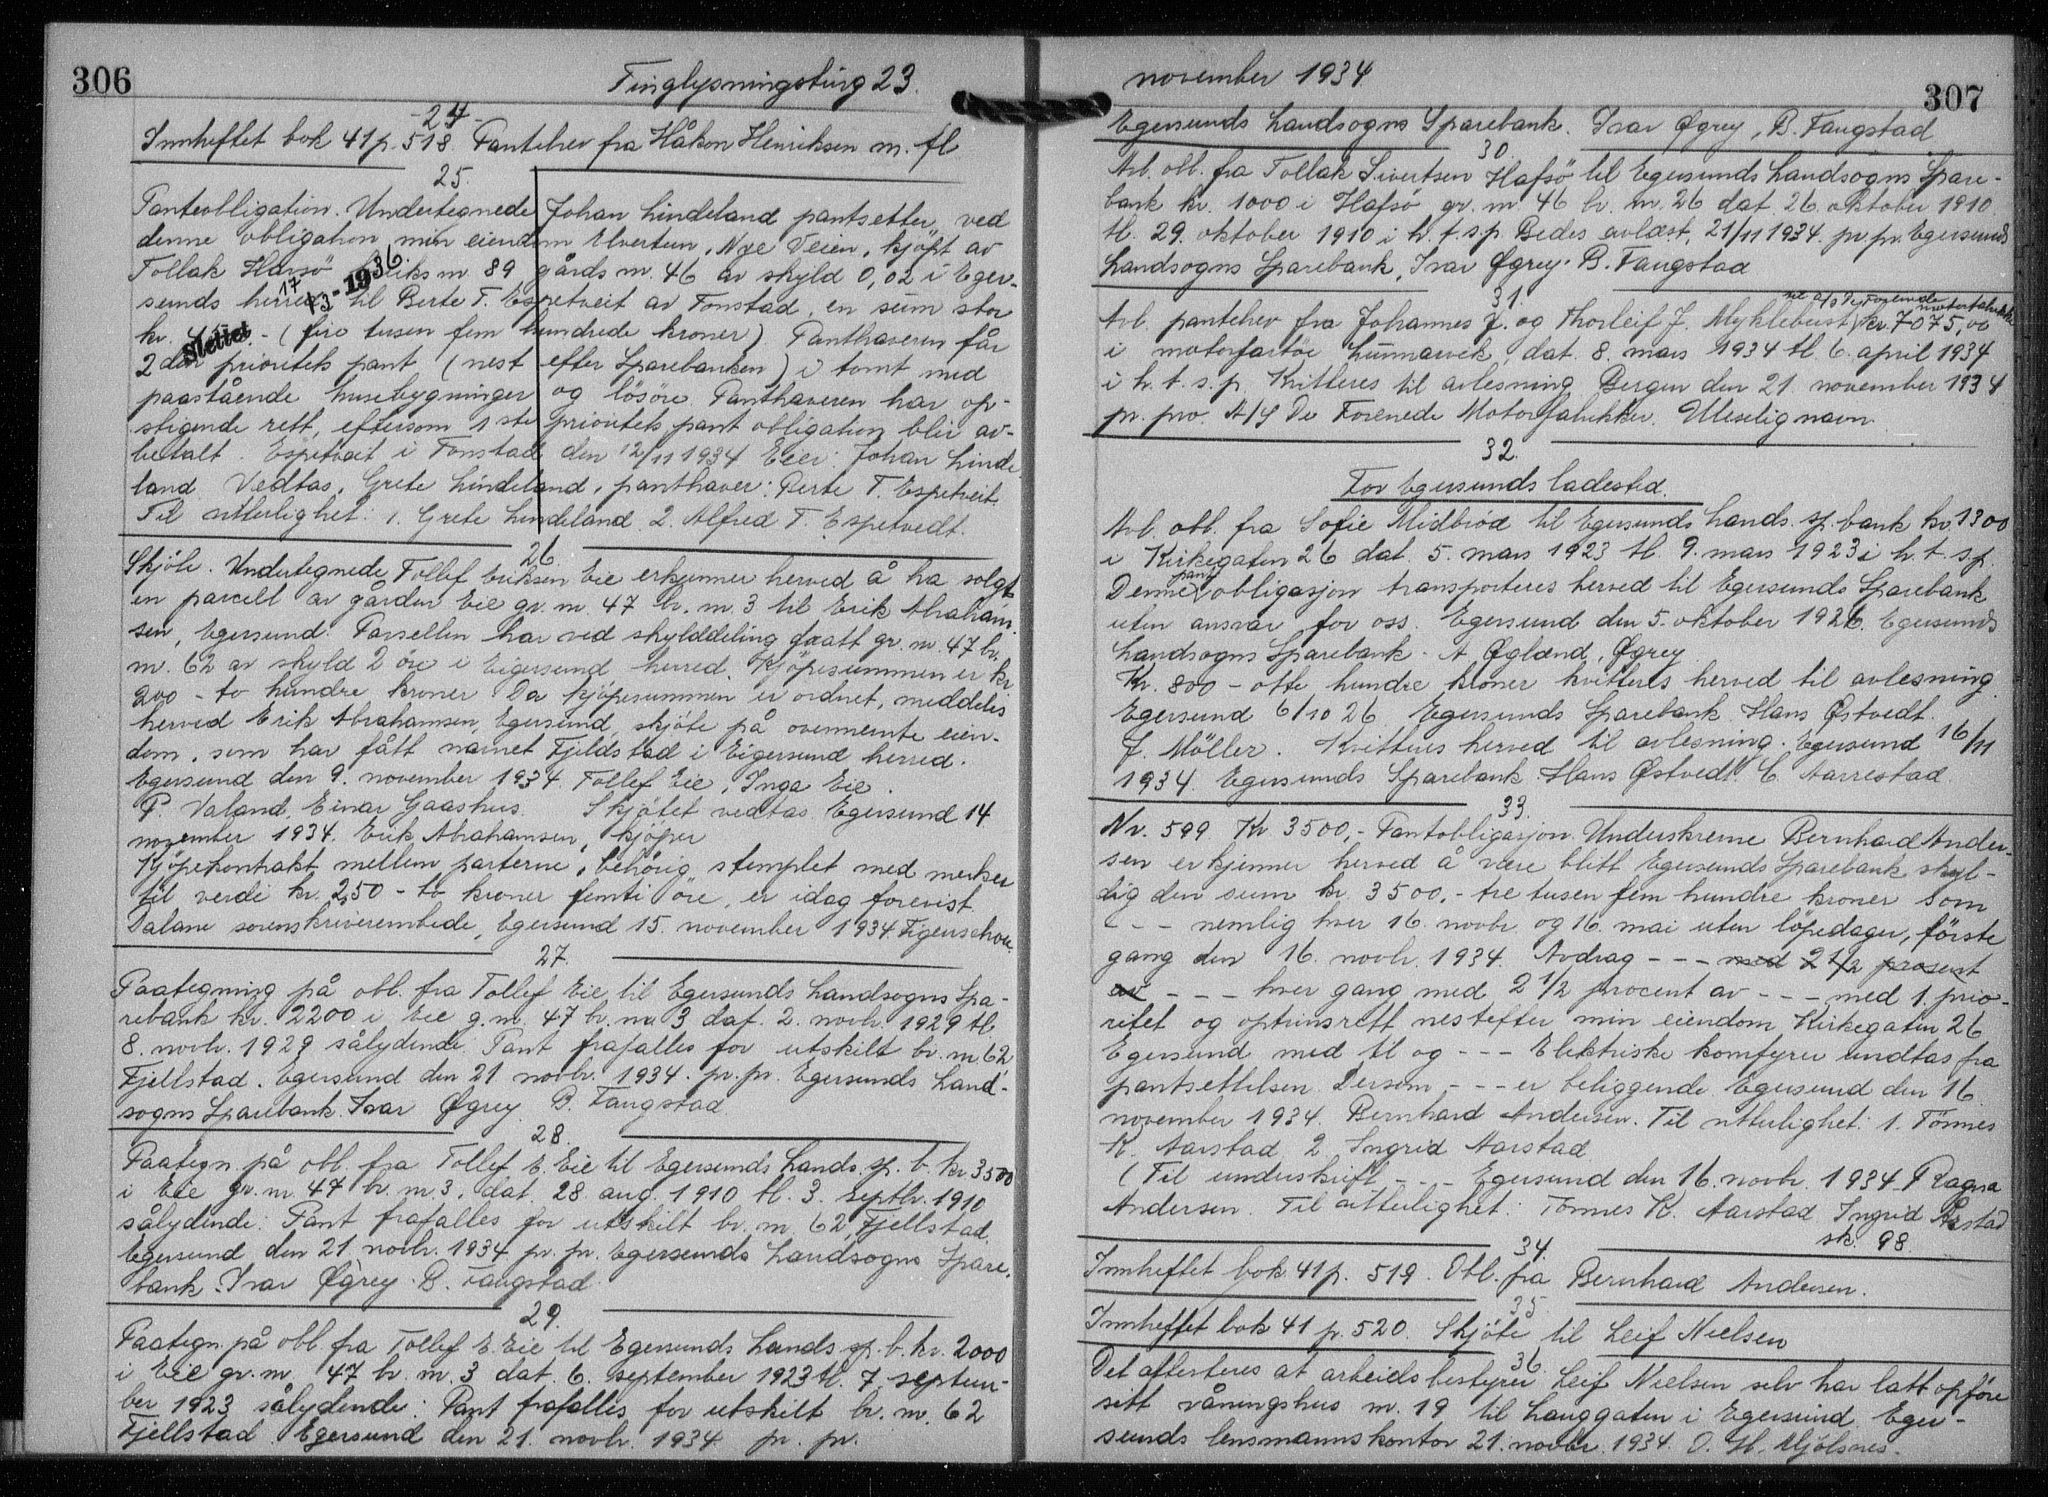 306
Tinglysningsting 23.
- 24 -
Innheftet bok 41 p. 518. Pantebrev fra Håkon Henriksen m. fl
25.
Panteobligation. Undertegnede Johan Lindeland pantsetter ved
denne obligation min eiendom Elvertun, Nye Veien, kjöpt av
Tollak Havsö bruks nr. 89 gårds nr. 46 av skyld 0,02 i Eger-
sunds herred til Berte T. Espetveit av Tonstad, en sum stor
17/3-1936
kr. - (fire tusen fem hundrede kroner) Panthaveren får
Slettet
2den prioritets pant (nest efter Sparebanken) i tomt med
paastående husebygninger og lösöre. Panthaveren har op-
stigende rett, eftersom 1ste prioritets pant obligation blir av-
betalt. Espetveit i Tonstad den 12/11 1934 Eier: Johan Linde-
land. Vedtas, Grete Lindeland, panthaver: Berte T. Espetveit.
Til vitterlighet: 1. Grete Lindeland 2. Alfred T. Espetvedt.
26.
Skjöte. Undertegnede Tollef Eriksen Eie erkjenner herved å ha solgt
en parcell av gården Eie gr. nr. 47 br. nr. 3 til Erik Abraham-
sen, Egersund. Parsellen har ved skylddeling faatt gr. nr. 47 br.
nr. 62 av skyld 2 öre i Eigersund herred. Kjöpesummen er kr
200 - to hundre kroner Da kjöpesummen er ordnet, meddeles
herved Erik Abrahamsen, Egersund, skjöte på ovennevnte eien-
dom, som har fått navnet Fjeldstad i Eigersund herred.
Egersund den 9. november 1934. Tollef Eie, Inga Eie.
P. Valand, Einar Gaashus. Skjötet vedtas Egersund 14
november 1934. Erik Abrahamsen, kjöper
Kjöpekontrakt mellem parterne, behörig stemplet med merker
til verdi kr. 2,50 - to kroner femti öre, er idag forevist
Dalane sorenskriverembede, Egersund 15. november 1934. Figenschou.
27.
Paategning på obl. fra Tollef Eie til Egersunds Landsogns Spa-
rebank kr. 2200 i Eie g. nr. 47 br. nr. 3 dat. 2. novbr. 1929 tl.
8. novbr. 1929 sålydende. Pant frafalles for utskilt br. nr 62
Fjellstad. Egersund den 21 novbr. 1934. pr. pr. Egersunds Land-
sogns Sparebank. Ivar Øgrey B. Taugstad
28.
Paategn. på obl. fra Tollef E. Eie til Egersunds Lands. sp. b. kr. 3500
i Eie gr. nr. 47 br. nr. 3. dat. 28. aug. 1910 tl. 3. septbr. 1910
sålydende: Pant frafalles for utskilt br. nr. 62, Fjellstad.
Egersund den 21 novbr. 1934 pr. pr. Egersunds Landsogns Spare-
bank. Ivar Øgrey. B. Taugstad
29.
Paategn. på obl. fra Tollef E. Eie til Egersunds Lands. sp. b. kr. 2000
i Eie gr. nr. 47 br. nr. 3 dat. 6. september 1923 tl. 7 septem-
ber 1923 sålydende: Pant frafalles for utskilt br. nr. 62
Fjellstad. Egersund den 21. novbr. 1934 pr. pr.
november 1934
307
Egersunds Landsogns Sparebank. Ivar Øgrey, B. Taugstad
30.
Avl. obl. fra Tollak Sivertsen Hafsö til Egersunds Landsogns Spare-
bank kr. 1000 i Hafsö gr. nr 46 br. nr. 26 dat. 26. oktober 1910
tl. 29. oktober 1910 i h. t. s. p. Bedes avlæst, 21/11 1934. pr. pr. Egersunds
Landsogns Sparebank, Ivar Øgrey. B. Taugstad
31.
til A/S De Forenede Motorfabrikker
Avl. pantebrev fra Johannes J. og Thorleif J. Myklebust kr. 7075,00
i motorfartöi Lunnarvik, dat. 8. mars 1934 tl. 6. april 1934
i h. t. s. p. Kvitteres til avlesning Bergen den 21. november 1934
pr. pro. A/S De Forenede Motorfabrikker. Uleselig navn.
32.
For Egersunds ladested.
Avl. obl. fra Sofie Midbröd til Egersunds Lands. sp. bank kr 1300
i Kirkegaten 26 dat. 5. mars 1923 tl. 9. mars 1923 i h. t. s. p.
pant
Denne obligasjon transporteres herved til Egersunds Sparebank
uten ansvar for oss. Egersund den 5. oktober 1926. Egersunds
Landsogns Sparebank. A Øglænd, Øgrey.
Kr. 800 - otte hundre kroner kvitteres herved til avlesning
Egersund 6/10 26. Egersunds Sparebank. Hans Østvedt.
J. Möller. Kvitteres herved til avlesning. Egersund 16/11
1934. Egersunds Sparebank. Hans Østvedt C. Aarrestad.
33.
Nr. 599 Kr 3500,- Pantobligasjon. Underskrevne Bernhard Ander-
sen erkjenner herved å være blitt Egersunds Sparebank skyl-
dig den sum kr. 3500,- tre tusen fem hundre kroner som
- - - nemlig hver 16. novbr. og 16. mai uten löpedager, förste
gang den 16. novbr. 1934. Avdrag - - - med 2 1/2 prosent
av - - - hver gang med 2 1/2 procent av - - - med 1. prio-
ritet og optrinsrett nestefter min eiendom Kirkegaten 26
Egersund med til og - - - Elektriske komfyrer undtas fra
pantsettelsen. Dersom - - - er beliggende. Egersund den 16
november 1934. Bernhard Andersen. Til vitterlighet: 1. Tönnes
K. Aarstad 2. Ingrid Aarstad
(Til underskrift - - - Egersund den 16. novbr. 1934 Ragna
Andersen. Til vitterlighet: Tönnes K. Aarstad Ingrid Aarstad
sk. 98
34.
Innheftet bok 41 p. 519. Obl. fra Bernhard Andersen.
35.
Innheftet bok 41 p. 520. Skjöte til Leif Nielsen
36.
Det attesteres at arbeidsbestyrer Leif Nielsen selv har latt opföre
sitt våningshus nr. 19 til Langgaten i Egersund. Eger-
sunds lensmannskontor 21. novbr. 1934. O. H. Mjölsnes.